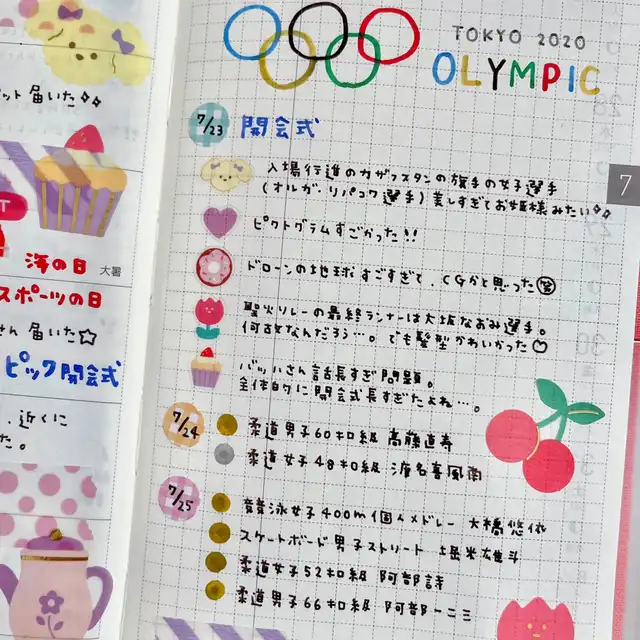 ット届いた✧✧
T
海の日 大暑
スポーツの日
さん届いた☆
ピック開会式
、近くに
た。
TOKYO 2020
OLYMPIC
7
7/23 開会式
入場行進のカザフスタンの旗手の女子選手
(オルガ・リパコワ選手)美しすぎてお姫様みたい✧✧
ピクトグラムすごかった!!
ドローンの地球すごすぎて、CGかと思った
聖火リレーの最終ランナーは大坂なおみ選手。
何故なんだろう…。でも髪型かわいかった♡
バッハさん話長すぎ問題。
全体的に開会式長すぎたよね…。
7/24 柔道男子60キロ級 高藤直寿
柔道女子48キロ級 渡名喜風南
7/25
競泳女子400m個人メドレー 大橋悠依
スケートボード男子ストリート 堀米雄斗
柔道女子52キロ級 阿部詩
柔道男子66キロ級 阿部一二三